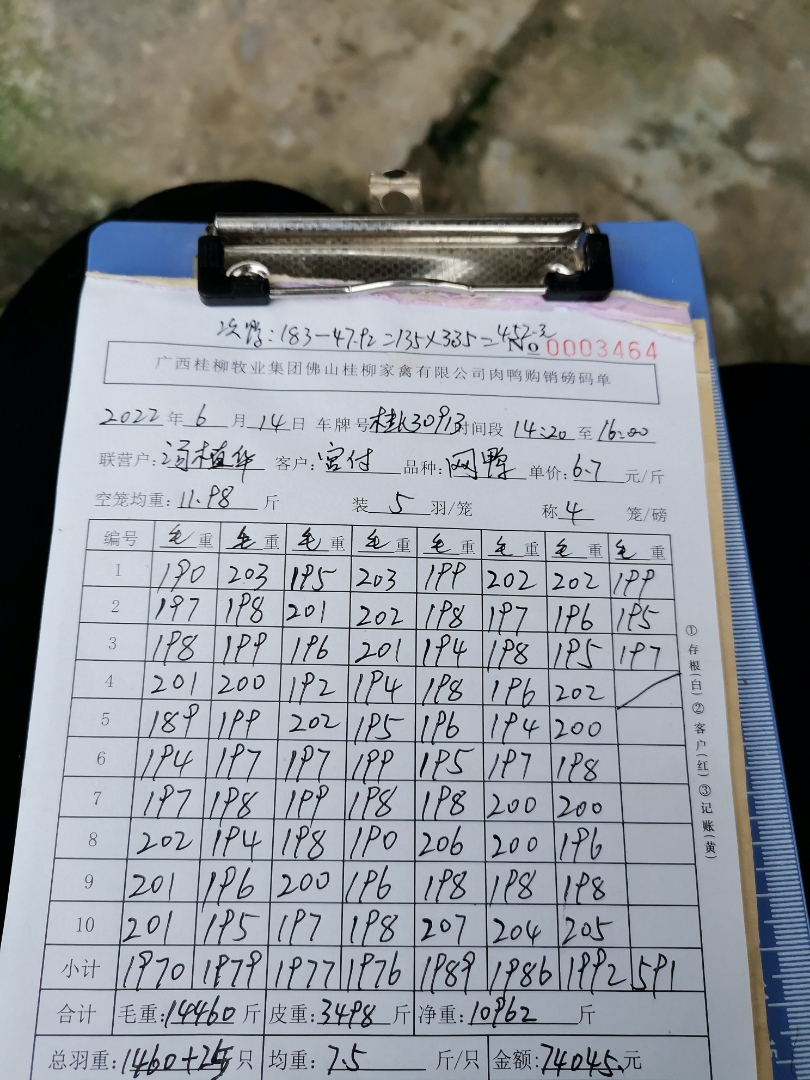 次鸭:183-47.92=135×335=452.3
No 0003464
广西桂柳牧业集团佛山桂柳家禽有限公司肉鸭购销磅码单
2022年6月14日 车牌号 时间段 14:20至16:00
联营户:冯植华 客户:宫付 品种: 鸭 单价:6.7 元/斤
空笼均重:11.98 斤 装 5 羽/笼 称 4 笼/磅
编号 毛重 毛重 毛重 毛重 毛重 毛重 毛重 毛重
1 190 203 195 203 199 202 202 199
2 197 198 201 202 198 197 196 195
3 198 199 196 201 194 198 195 197
4 201 200 192 194 198 196 202
5 189 199 202 195 196 194 200
6 194 197 197 199 195 197 198
7 197 198 199 198 198 200 200
8 202 194 198 190 206 200 196
9 201 196 200 196 198 198 198
10 201 195 197 198 207 204 205
小计 1970 1979 1977 1976 1989 1986 1992 591
合计 毛重:14460斤 皮重:3498斤 净重:10962斤
总羽重:1460+25只 均重:7.5 斤/只 金额:74045.元
①存根(白)②客户(红)③记账(黄)